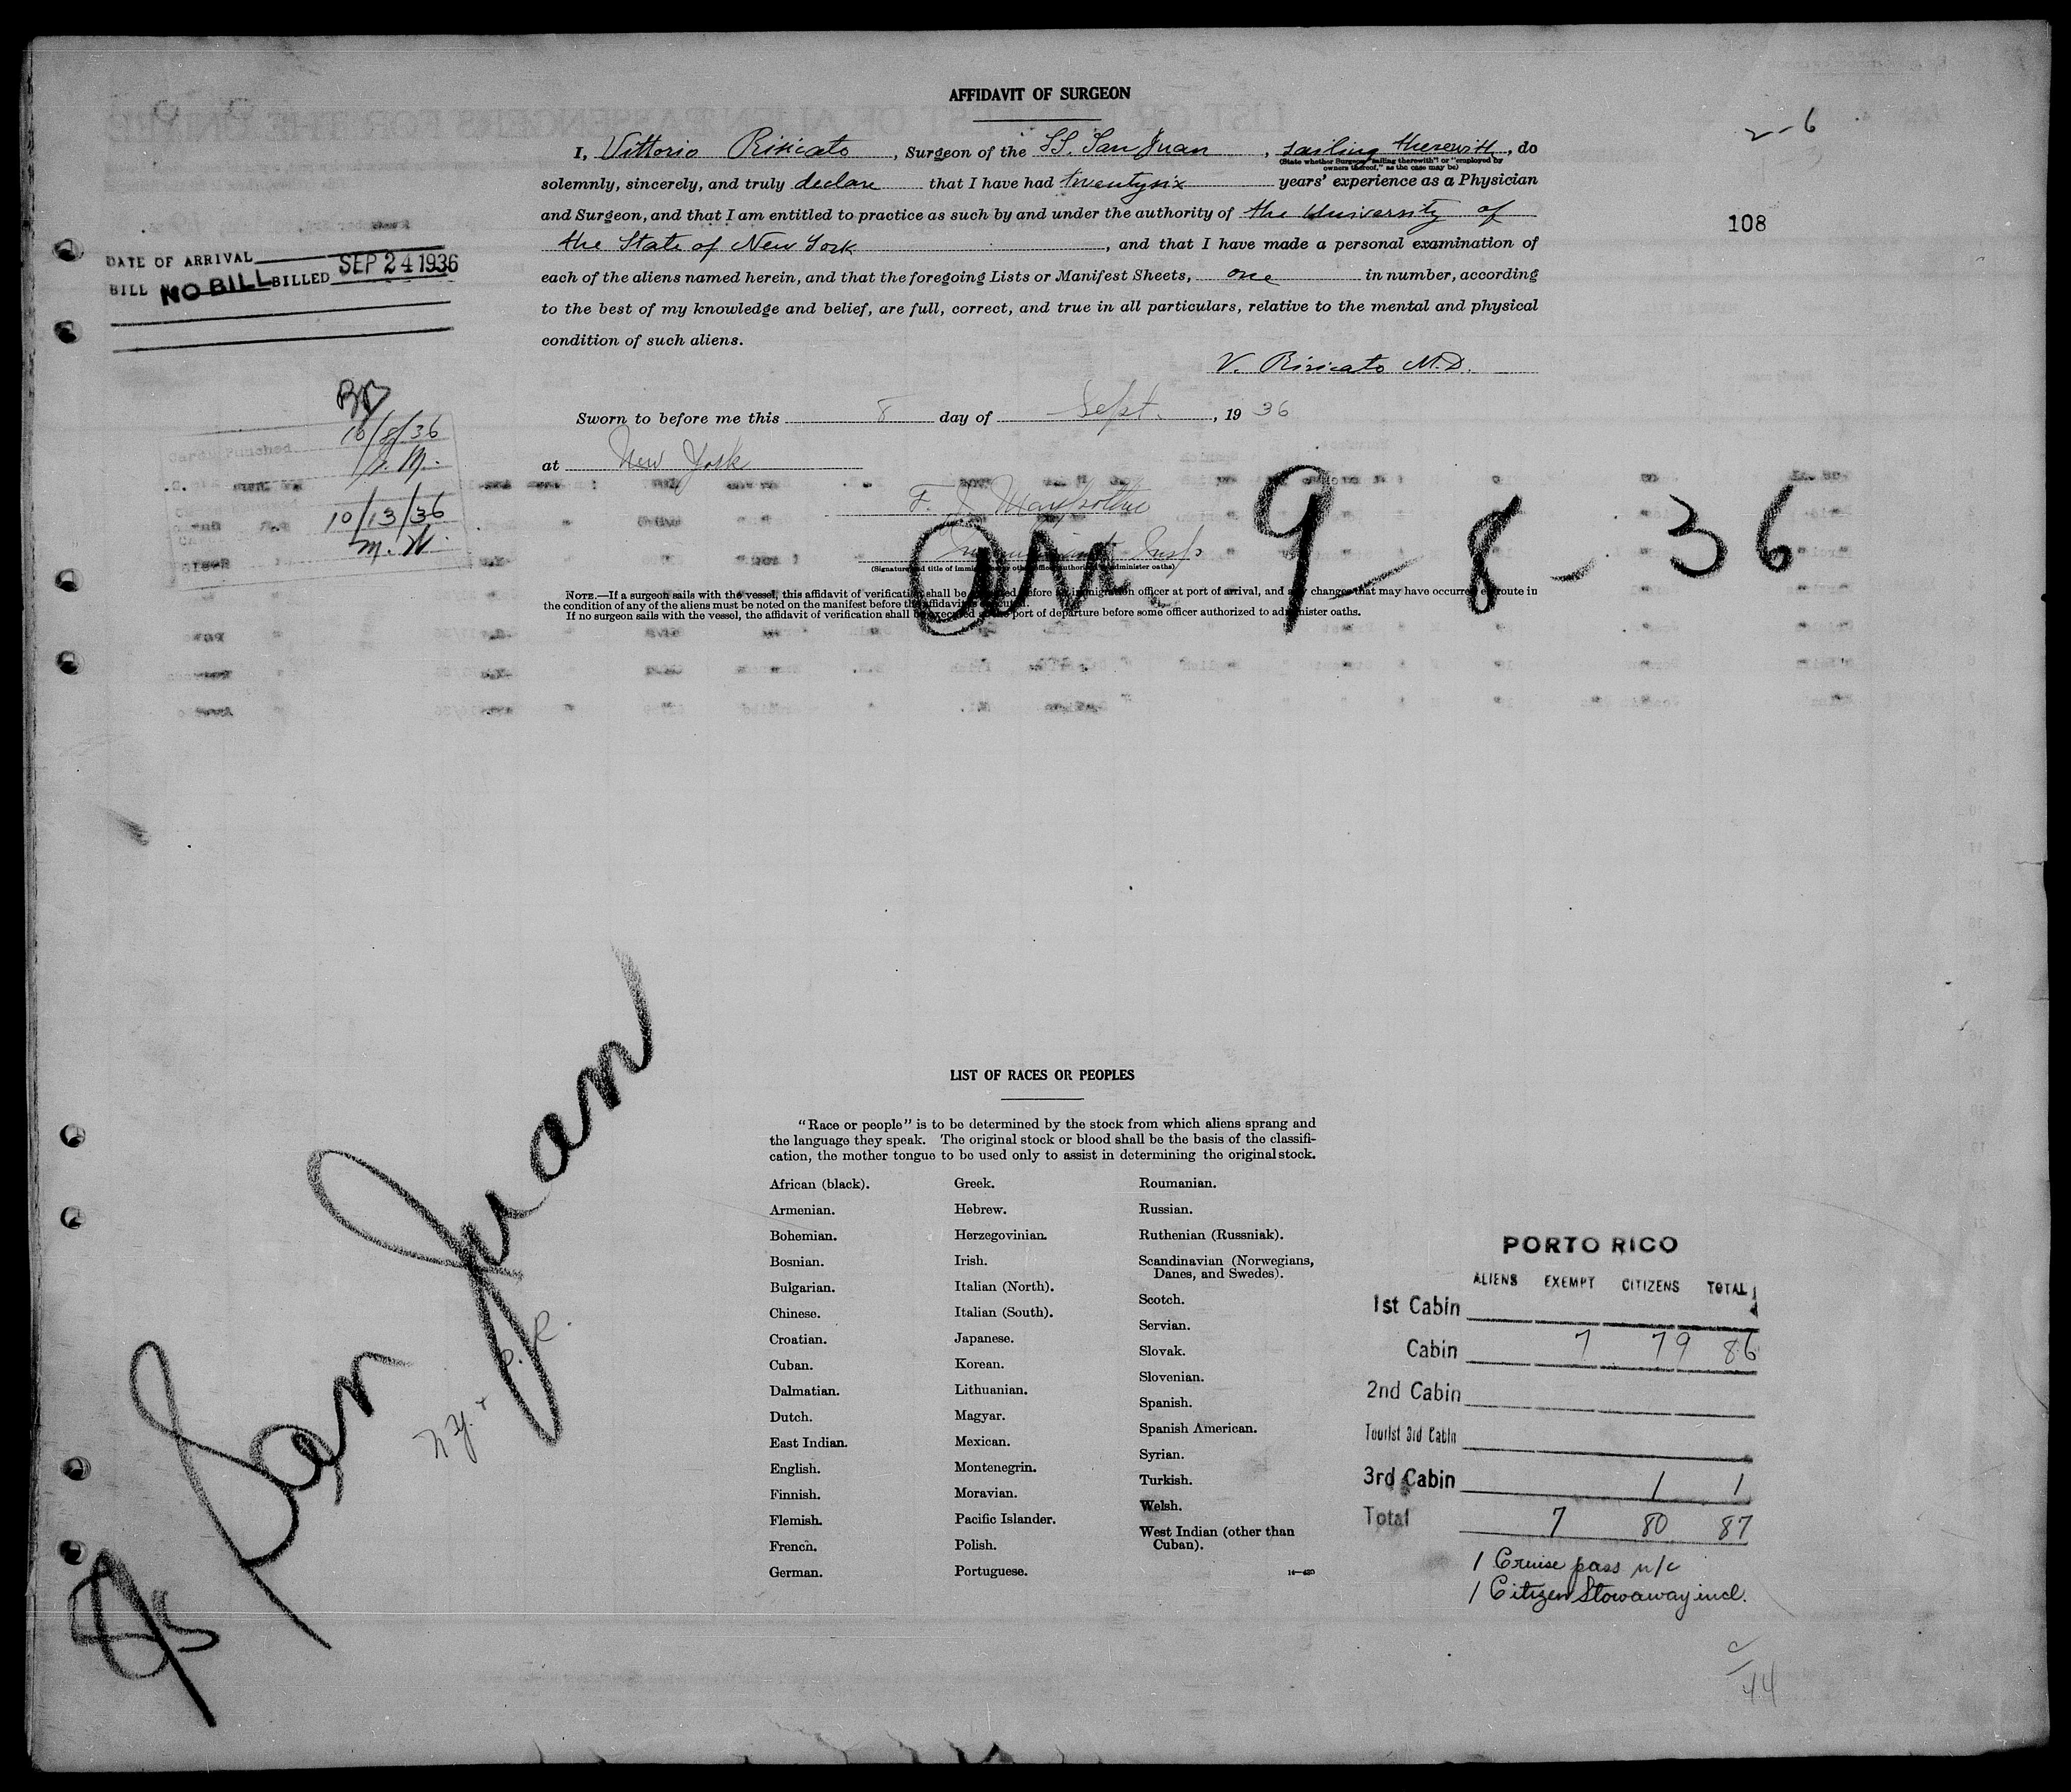 AFFIDAVIT OF SURGEON
2-6
I, Vittorio Risicato, Surgeon of the SS. San Juan, sailing therewith, do
(State whether Surgeon "sailing therewith" or "employed by
owners thereof," as the case may be)
solemnly, sincerely, and truly declare that I have had twentysix years' experience as a Physician
and Surgeon, and that I am entitled to practice as such by and under the authority of the University of
108
the State of New York, and that I have made a personal examination of
each of the aliens named herein, and that the foregoing Lists or Manifest Sheets, one in number, according
to the best of my knowledge and belief, are full, correct, and true in all particulars, relative to the mental and physical
condition of such aliens.
V. Risicato M.D.
Sworn to before me this 8 day of Sept., 1936
at New York
F. J.
Immigrant Insp
(Signature and title of immigration or other officer authorized to administer oaths)
NOTE.—If a surgeon sails with the vessel, this affidavit of verification shall be executed before an immigration officer at port of arrival, and any changes that may have occurred en route in
the condition of any of the aliens must be noted on the manifest before the affidavit is executed.
If no surgeon sails with the vessel, the affidavit of verification shall be executed at the port of departure before some officer authorized to administer oaths.
DATE OF ARRIVAL
BILL NO BILL BILLED SEP 24 1936
Cards Punched 10/8/36
10/13/36
M. W.
Arr. 9-8-36
SS San Juan
N.Y. + P.R.
LIST OF RACES OR PEOPLES
"Race or people" is to be determined by the stock from which aliens sprang and
the language they speak. The original stock or blood shall be the basis of the classifi-
cation, the mother tongue to be used only to assist in determining the original stock.
African (black).
Armenian.
Bohemian.
Bosnian.
Bulgarian.
Chinese.
Croatian.
Cuban.
Dalmatian.
Dutch.
East Indian.
English.
Finnish.
Flemish.
French.
German.
Greek.
Hebrew.
Herzegovinian.
Irish.
Italian (North).
Italian (South).
Japanese.
Korean.
Lithuanian.
Magyar.
Mexican.
Montenegrin.
Moravian.
Pacific Islander.
Polish.
Portuguese.
Roumanian.
Russian.
Ruthenian (Russniak).
Scandinavian (Norwegians,
Danes, and Swedes).
Scotch.
Servian.
Slovak.
Slovenian.
Spanish.
Spanish American.
Syrian.
Turkish.
Welsh.
West Indian (other than
Cuban).
14—430
PORTO RICO
ALIENS EXEMPT CITIZENS TOTAL
1st Cabin
Cabin 7 79 86
2nd Cabin
Tourist 3rd Cabin
3rd Cabin 1 1
Total 7 80 87
1 Cruise pass n/c
1 Citizen Stowaway incl.
44